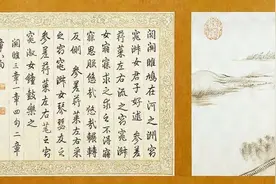 關關雎鳩在河之洲窈
窕淑女君子好逑參差
荇菜左右流之窈窕淑
女寤寐求之求之不得寤
寐思服悠哉悠哉輾轉
反側 參差荇菜左右采
之窈窕淑女琴瑟友之
參差荇菜左右芼之窈
窕淑女鐘鼓樂之
關雎三章一章四句二章
章八句